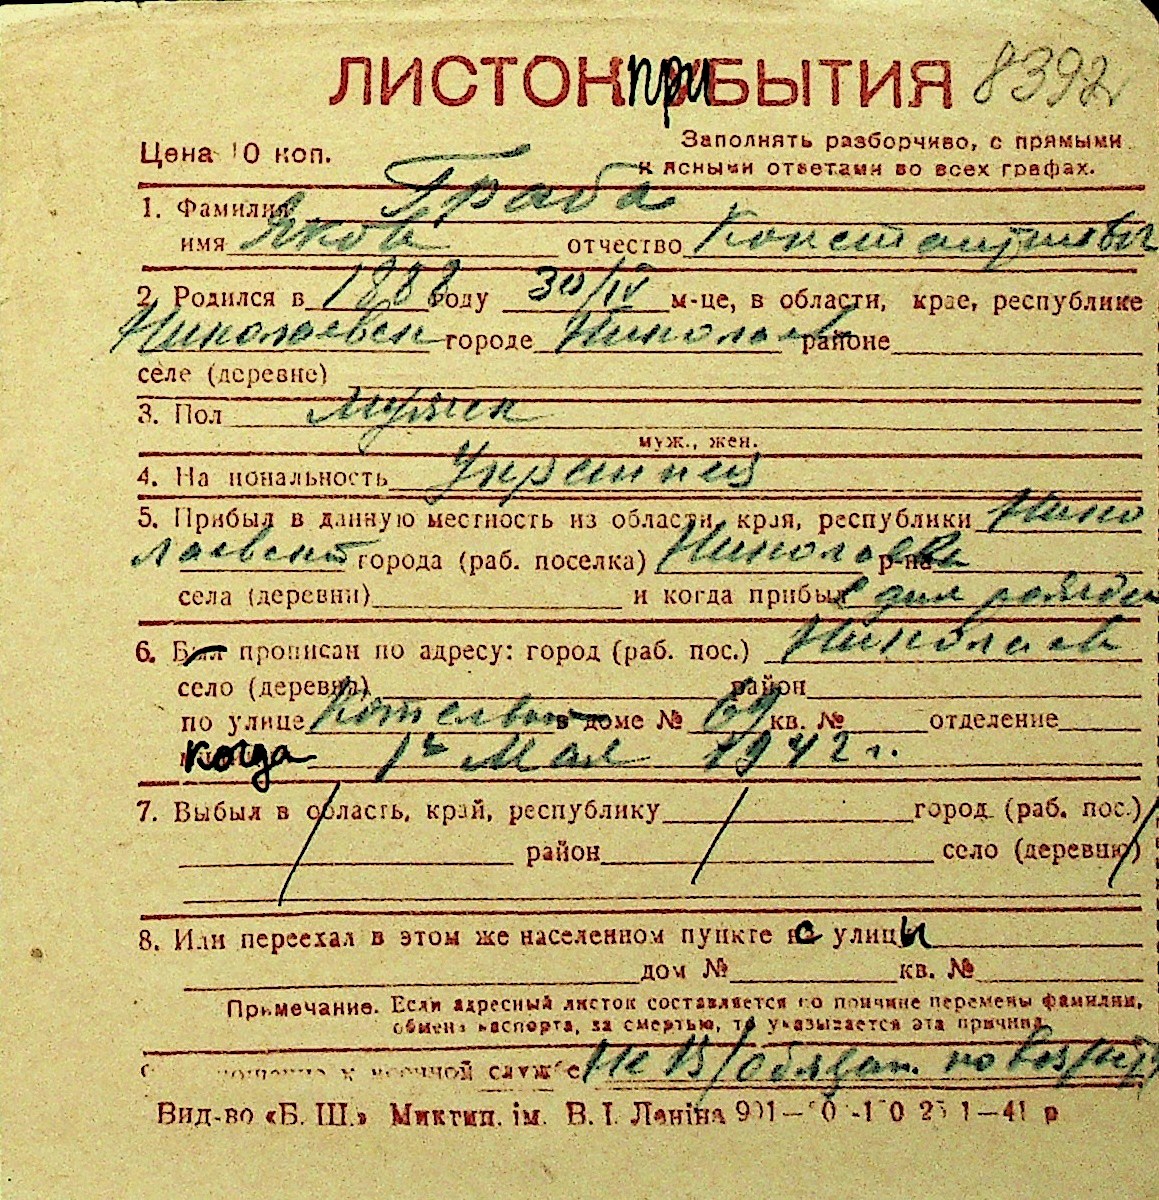 ЛИСТОК ПРИБЫТИЯ 8392
Цена 10 коп. Заполнять разборчиво, с прямыми
и ясными ответами во всех графах.
1. Фамилия Граба
имя Яков отчество Константинович
2. Родился в 1888 году 30/IV м-це, в области, крае, республике
Николаевск городе Николаев районе
селе (деревне)
3. Пол мужск
муж., жен.
4. Национальность Украинец
5. Прибыл в данную местность из области, края, республики Нико
лаевской города (раб. поселка) Николаев р-на
села (деревни) и когда прибыл С дня рожден
6. Был прописан по адресу: город (раб. пос.) Николаев
село (деревня) район
по улице Котельн в доме № 69 кв. № отделение
когда 1го Мая 1942 г.
7. Выбыл в область, край, республику город (раб. пос.)
район село (деревню)
8. Или переехал в этом же населенном пункте с улицы
дом № кв. №
Примечание. Если адресный листок составляется по причине перемены фамилии,
обмена паспорта, за смертью, то указывается эта причина.
к военной службе Не в/обязан. по возрасту
Вид-во «Б. Ш.» Миктип. ім. В. І. Леніна